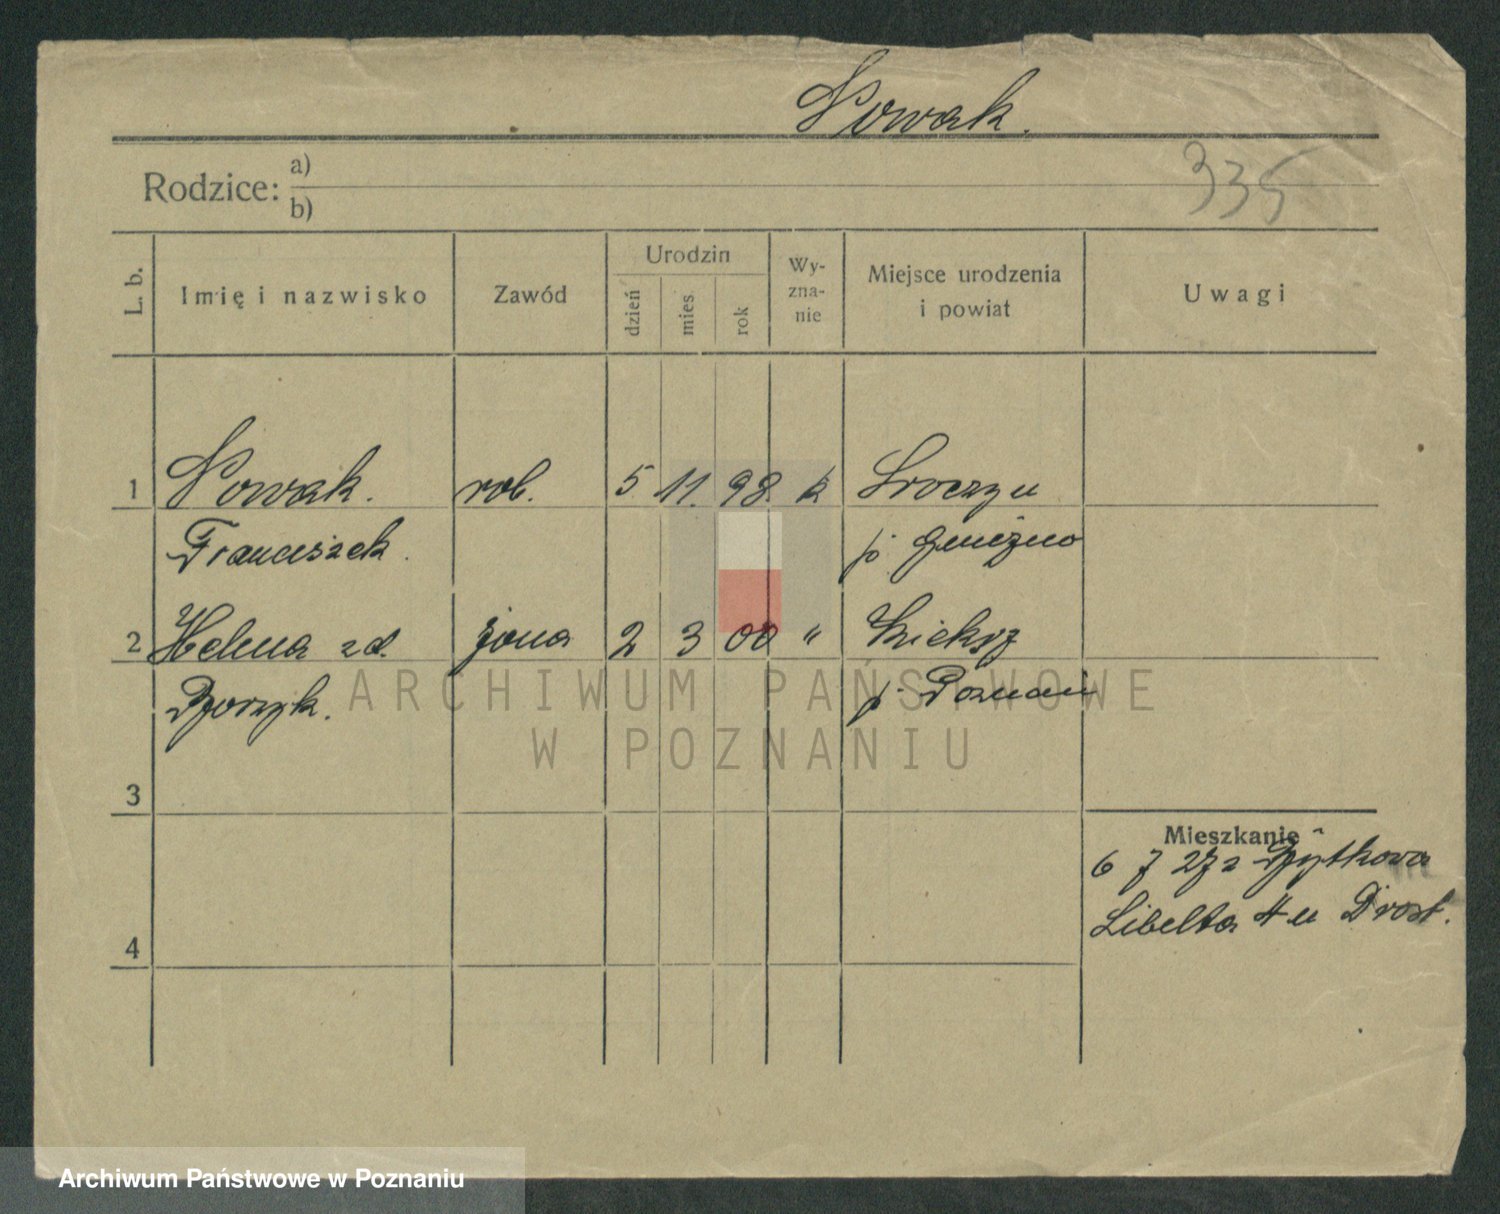 Nowak.
335
Rodzice: a)
b)
L. b. Imię i nazwisko Zawód Urodzin dzień mies. rok Wy-zna-nie Miejsce urodzenia i powiat Uwagi
1 Nowak. rob. 5 11. 98. k
Franciszek. p. Gniezno
2 Helena zd. żona 2 3 00 " Kiekrz
p. Poznań
ARCHIWUM PAŃSTWOWE
W POZNANIU
3
Mieszkanie
6 7 27 z
Libelta 4 u
4
Archiwum Państwowe w Poznaniu